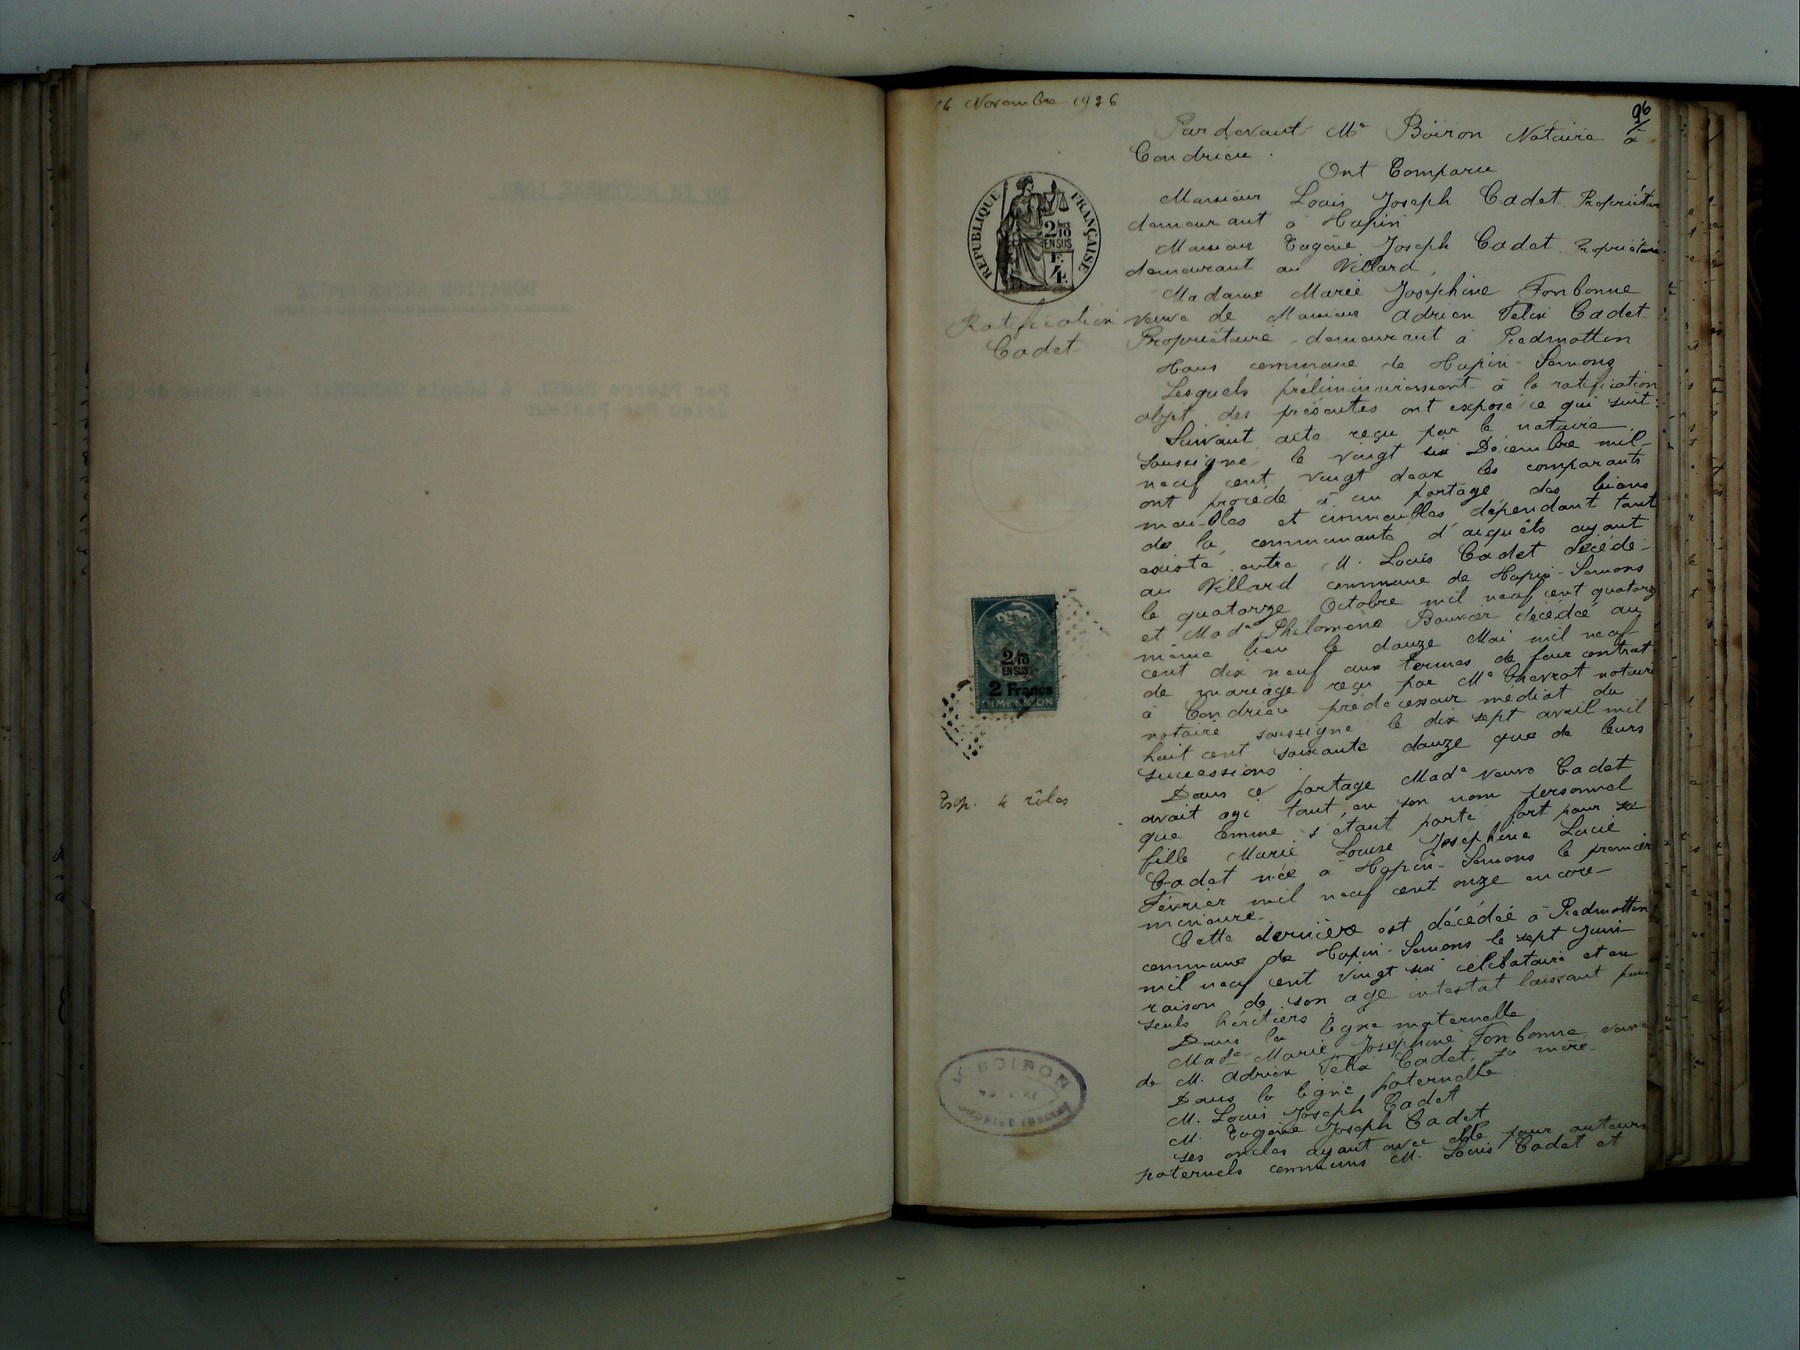 16 Novembre 1926
96
Par devant Me Boiron Notaire à
Condrieu.
Ont Comparu
Monsieur Louis Joseph Cadet Propriétaire
demeurant à Hapin
Monsieur Eugène Joseph Cadet Propriétaire
demeurant au Villard,
Madame Marie Joséphine Fonbonne
veuve de Monsieur Adrien Felix Cadet
Propriétaire, demeurant à Piedmotten
tous commune de Hapin-Semons
Lesquels préliminairement à la ratification
objet des présentes ont exposé ce qui suit :
Suivant acte reçu par le notaire
soussigné le vingt six Décembre mil
neuf cent vingt deux les comparants
ont procédé à un partage des biens
meubles et immeubles dépendant tant
de la communauté d'acquêts ayant
existé entre M. Louis Cadet décédé
au Villard commune de Hapin-Semons
le quatorze Octobre mil neuf cent quatorze
et Made Philomène Bouvier décédée au
même lieu le douze Mai mil neuf
cent dix neuf aux termes de leur contrat
de mariage reçu par Me Chevrot notaire
à Condrieu prédécesseur médiat du
notaire soussigné le dix sept avril mil
huit cent soixante douze que de leurs
successions.
Dans ce partage Made veuve Cadet
avait agi tant en son nom personnel
que comme s'étant porté fort pour sa
fille Marie Louise Joséphine Lucie
Cadet née à Hapin-Semons le premier
Février mil neuf cent onze encore
mineure.
Cette dernière est décédée à Piedmotten
commune de Hapin-Semons le sept juin
mil neuf cent vingt six célibataire et en
raison de son age intestat laissant pour
seuls héritiers :
Dans la ligne maternelle
Made Marie Joséphine Fonbonne veuve
de M. Adrien Felix Cadet, sa mère
Dans la ligne paternelle
M. Louis Joseph Cadet
M. Eugène Joseph Cadet
ses oncles ayant avec elle pour auteurs
paternels communs M. Louis Cadet et
REPUBLIQUE FRANÇAISE
2/10
EN SUS
F.
4.
Ratification
Cadet
2/10
EN SUS
2 Francs
DIMENSION
Exp. 4 rôles
BOIRON